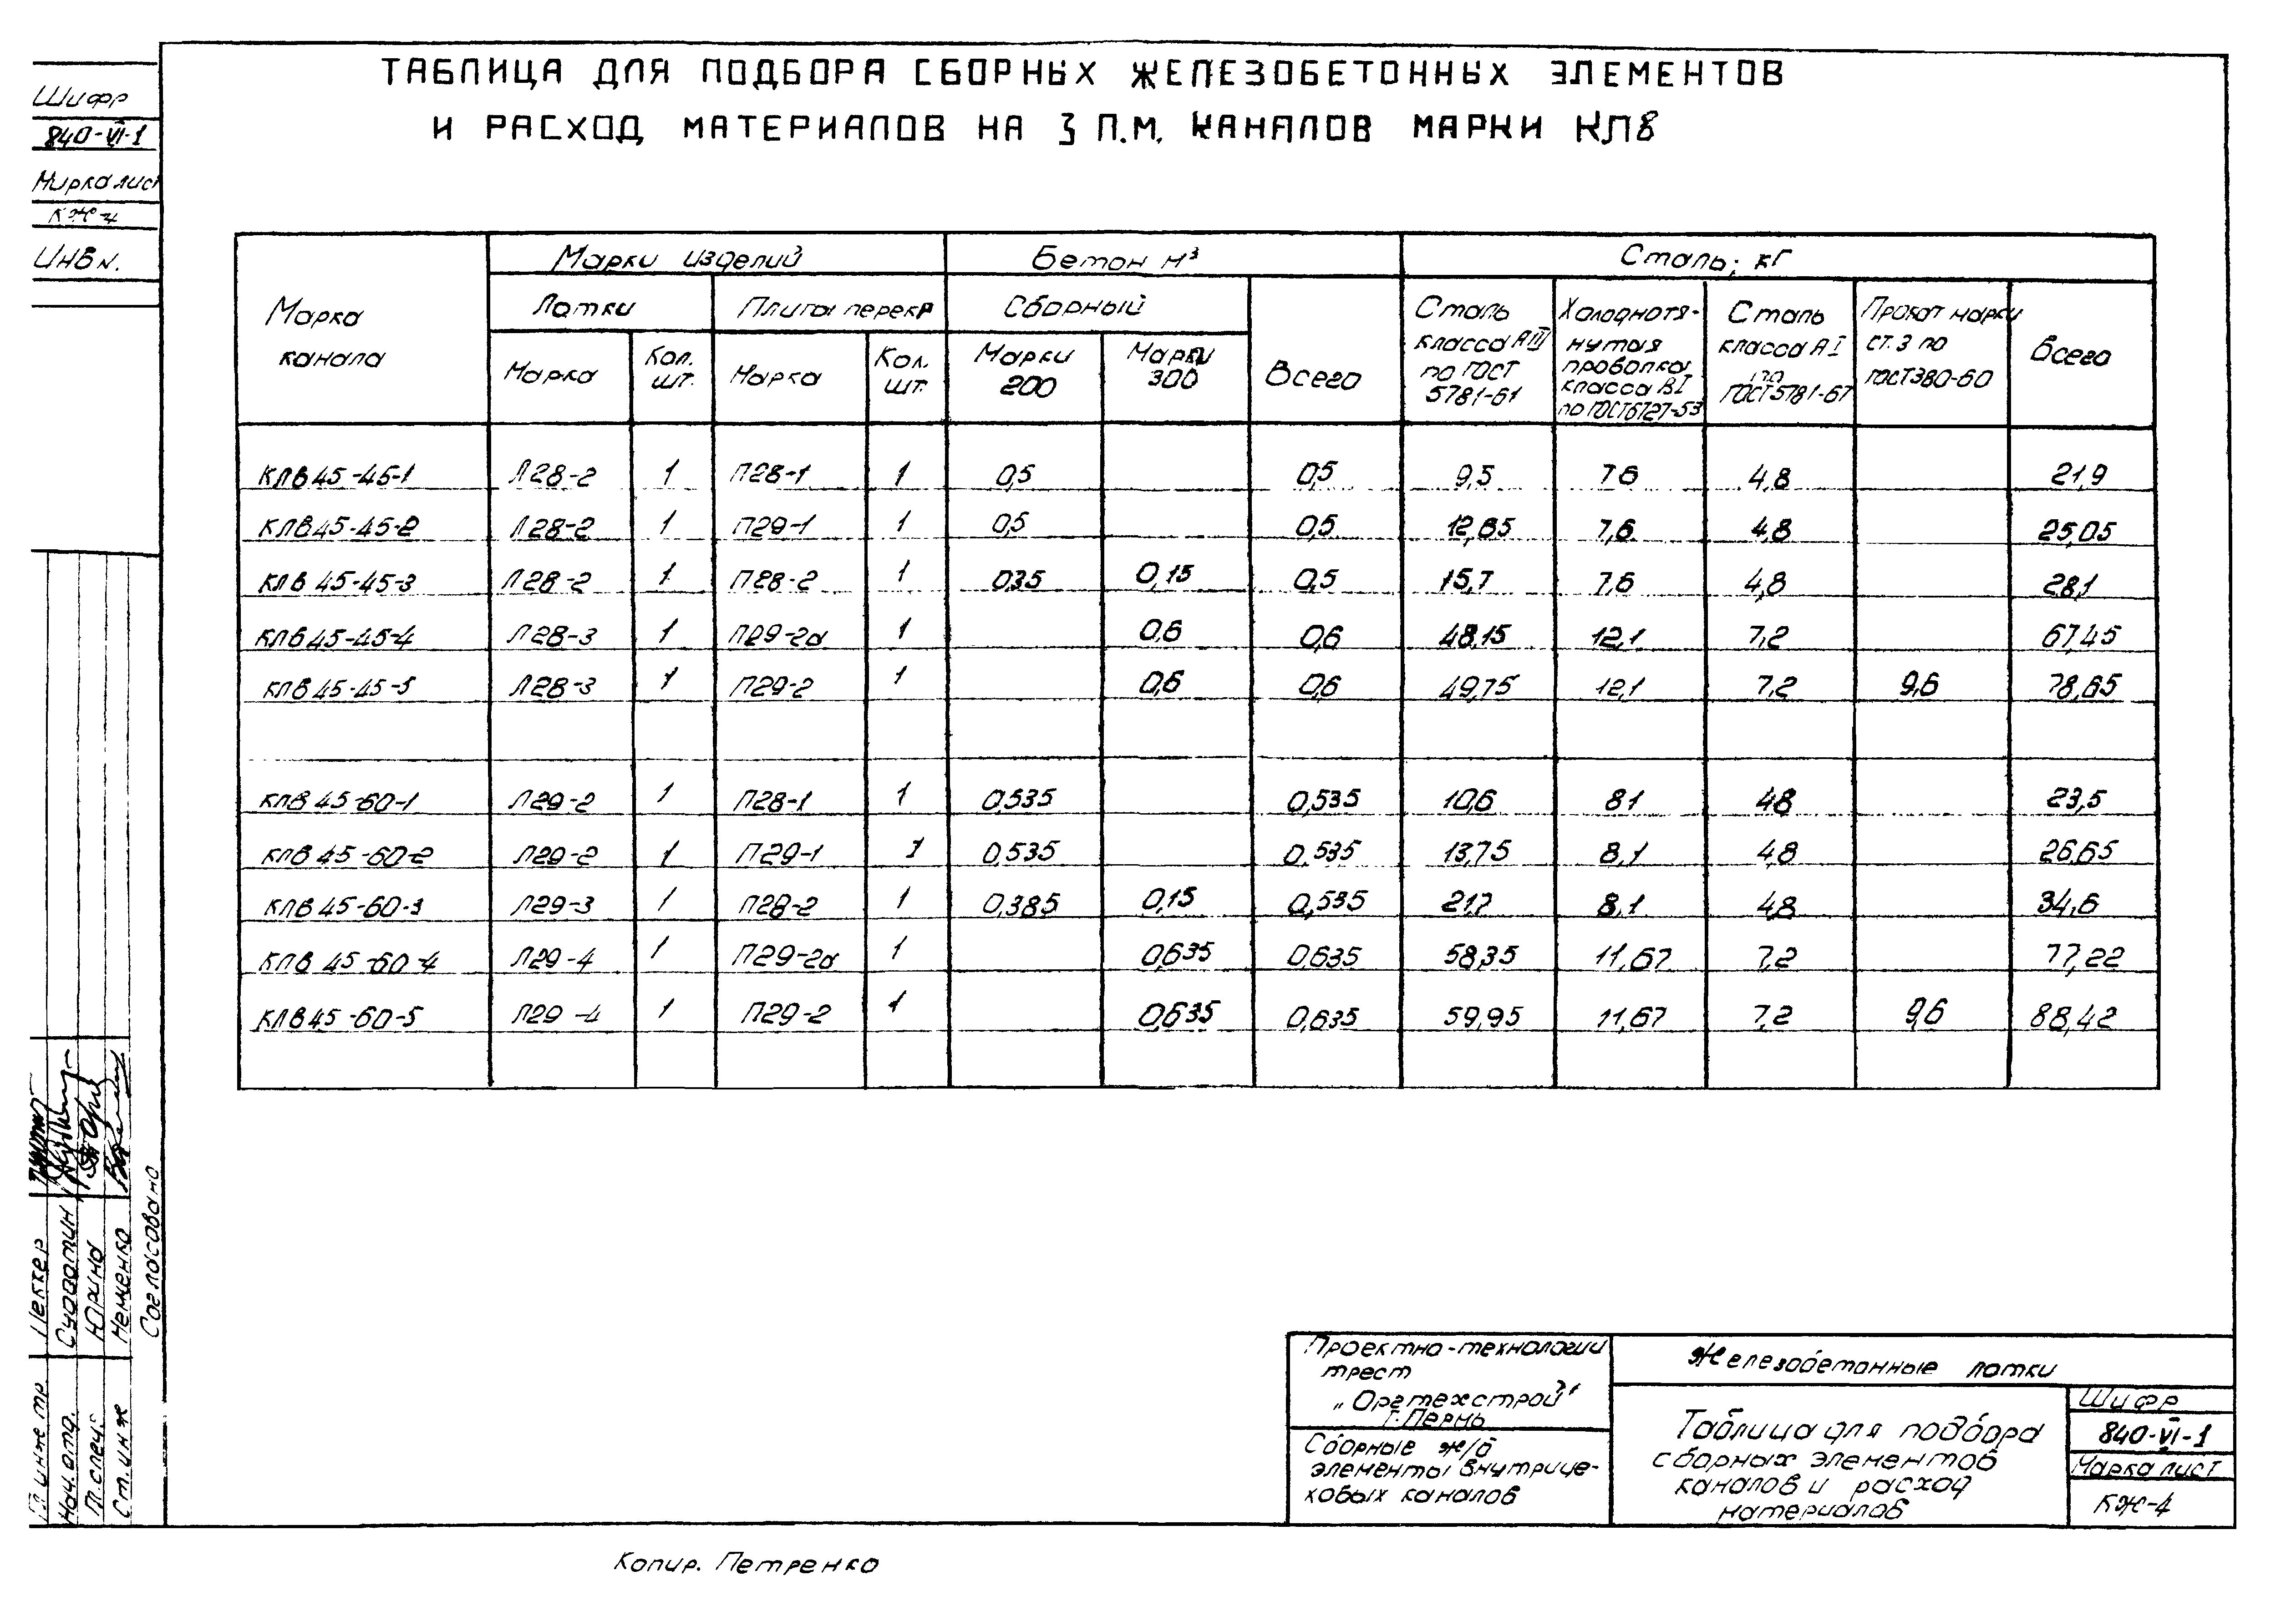 ТАБЛИЦА ДЛЯ ПОДБОРА СБОРНЫХ ЖЕЛЕЗОБЕТОННЫХ ЭЛЕМЕНТОВ
И РАСХОД МАТЕРИАЛОВ НА 3 П.М. КАНАЛОВ МАРКИ КЛВ
Шифр
840-VI-1
Марка лист
КЖ-4
ИНВ N.
Марка канала
Марки изделий
Бетон м³
Сталь; кг
Лотки
Плиты перекр
Сборный
Всего
Марка
Кол. шт.
Марка
Кол. шт.
Марки 200
Марки 300
Сталь класса АIII по ГОСТ 5781-61
Холоднотянутая проволка класса ВI по ГОСТ6727-53
Сталь класса АI по ГОСТ5781-67
Прокат марки ст.3 по ГОСТ380-60
Всего
КЛВ45-45-1 Л28-2 1 П28-1 1 0,5 0,5 9,5 76 4,8 21,9
КЛВ45-45-2 Л28-2 1 П29-1 1 0,5 0,5 12,65 7,6 4,8 25,05
КЛВ 45-45-3 Л28-2 1 П28-2 1 035 0,15 0,5 15,7 7,6 4,8 28,1
КЛВ45-45-4 Л28-3 1 П29-2а 1 0,6 0,6 48,15 12,1 7,2 67,45
КЛВ45-45-5 Л28-3 1 П29-2 1 0,6 0,6 49,75 12,1 7,2 9,6 78,65
КЛВ45-60-1 Л29-2 1 П28-1 1 0,535 0,535 10,6 81 48 23,5
КЛВ 45-60-2 Л29-2 1 П29-1 1 0,535 0,535 13,75 8,1 4,8 26,65
КЛВ 45-60-3 Л29-3 1 П28-2 1 0,385 0,15 0,535 21,7 8,1 4,8 34,6
КЛВ 45-60-4 Л29-4 1 П29-2а 1 0,635 0,635 58,35 11,67 7,2 77,22
КЛВ45-60-5 Л29-4 1 П29-2 1 0,635 0,635 59,95 11,67 7,2 9,6 88,42
Гл. инж тр. Неккер
Нач.отд.
Гл.спец. Юрина
Ст.инж Неменко
Согласовано
Проектно-технологич
трест
„Оргтехстрой"
г. Пермь
Сборные ж/б
элементы внутрице-
ховых каналов
Железобетонные лотки
Таблица для подбора
сборных элементов
каналов и расход
материалов
Шифр
840-VI-1
Марка лист
КЖ-4
Копир. Петренко